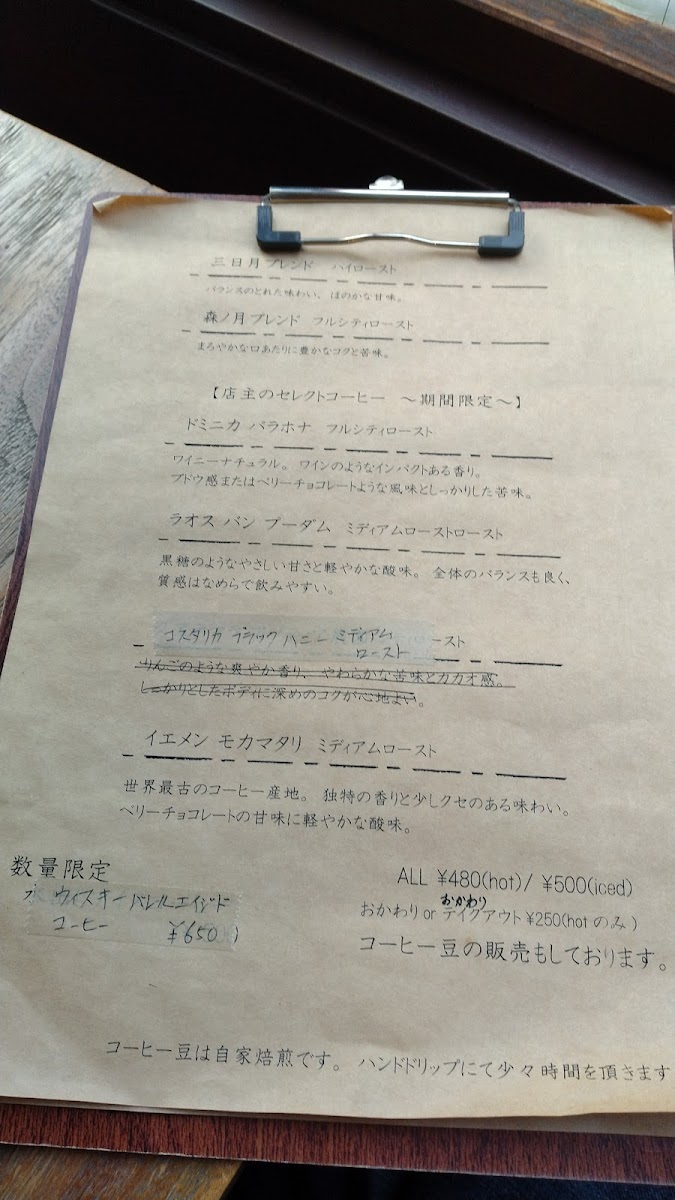 三日月ブレンド ハイロースト
バランスのとれた味わい、ほのかな甘味。
森ノ月ブレンド フルシティロースト
まろやかな口あたりに豊かなコクと苦味。
【店主のセレクトコーヒー ～期間限定～】
ドミニカ バラホナ フルシティロースト
ワイニーナチュラル。 ワインのようなインパクトある香り。
ブドウ感またはベリーチョコレートような風味としっかりした苦味。
ラオス バン ブーダム ミディアムローストロースト
黒糖のようなやさしい甘さと軽やかな酸味。 全体のバランスも良く、
質感はなめらで飲みやすい。
コスタリカ ブラックハニー ミディアム
ロースト
ースト
りんごのような爽やか香り、やわらかな苦味とカカオ感。
しっかりとしたボディに深めのコクが心地よい。
イエメン モカマタリ ミディアムロースト
世界最古のコーヒー産地。 独特の香りと少しクセのある味わい。
ベリーチョコレートの甘味に軽やかな酸味。
数量限定
ウィスキーバレルエイジド
コーヒー ¥650
ALL ¥480(hot)/ ¥500(iced)
おかわり
おかわり or テイクアウト ¥250(hot のみ)
コーヒー豆の販売もしております。
コーヒー豆は自家焙煎です。 ハンドドリップにて少々時間を頂きます